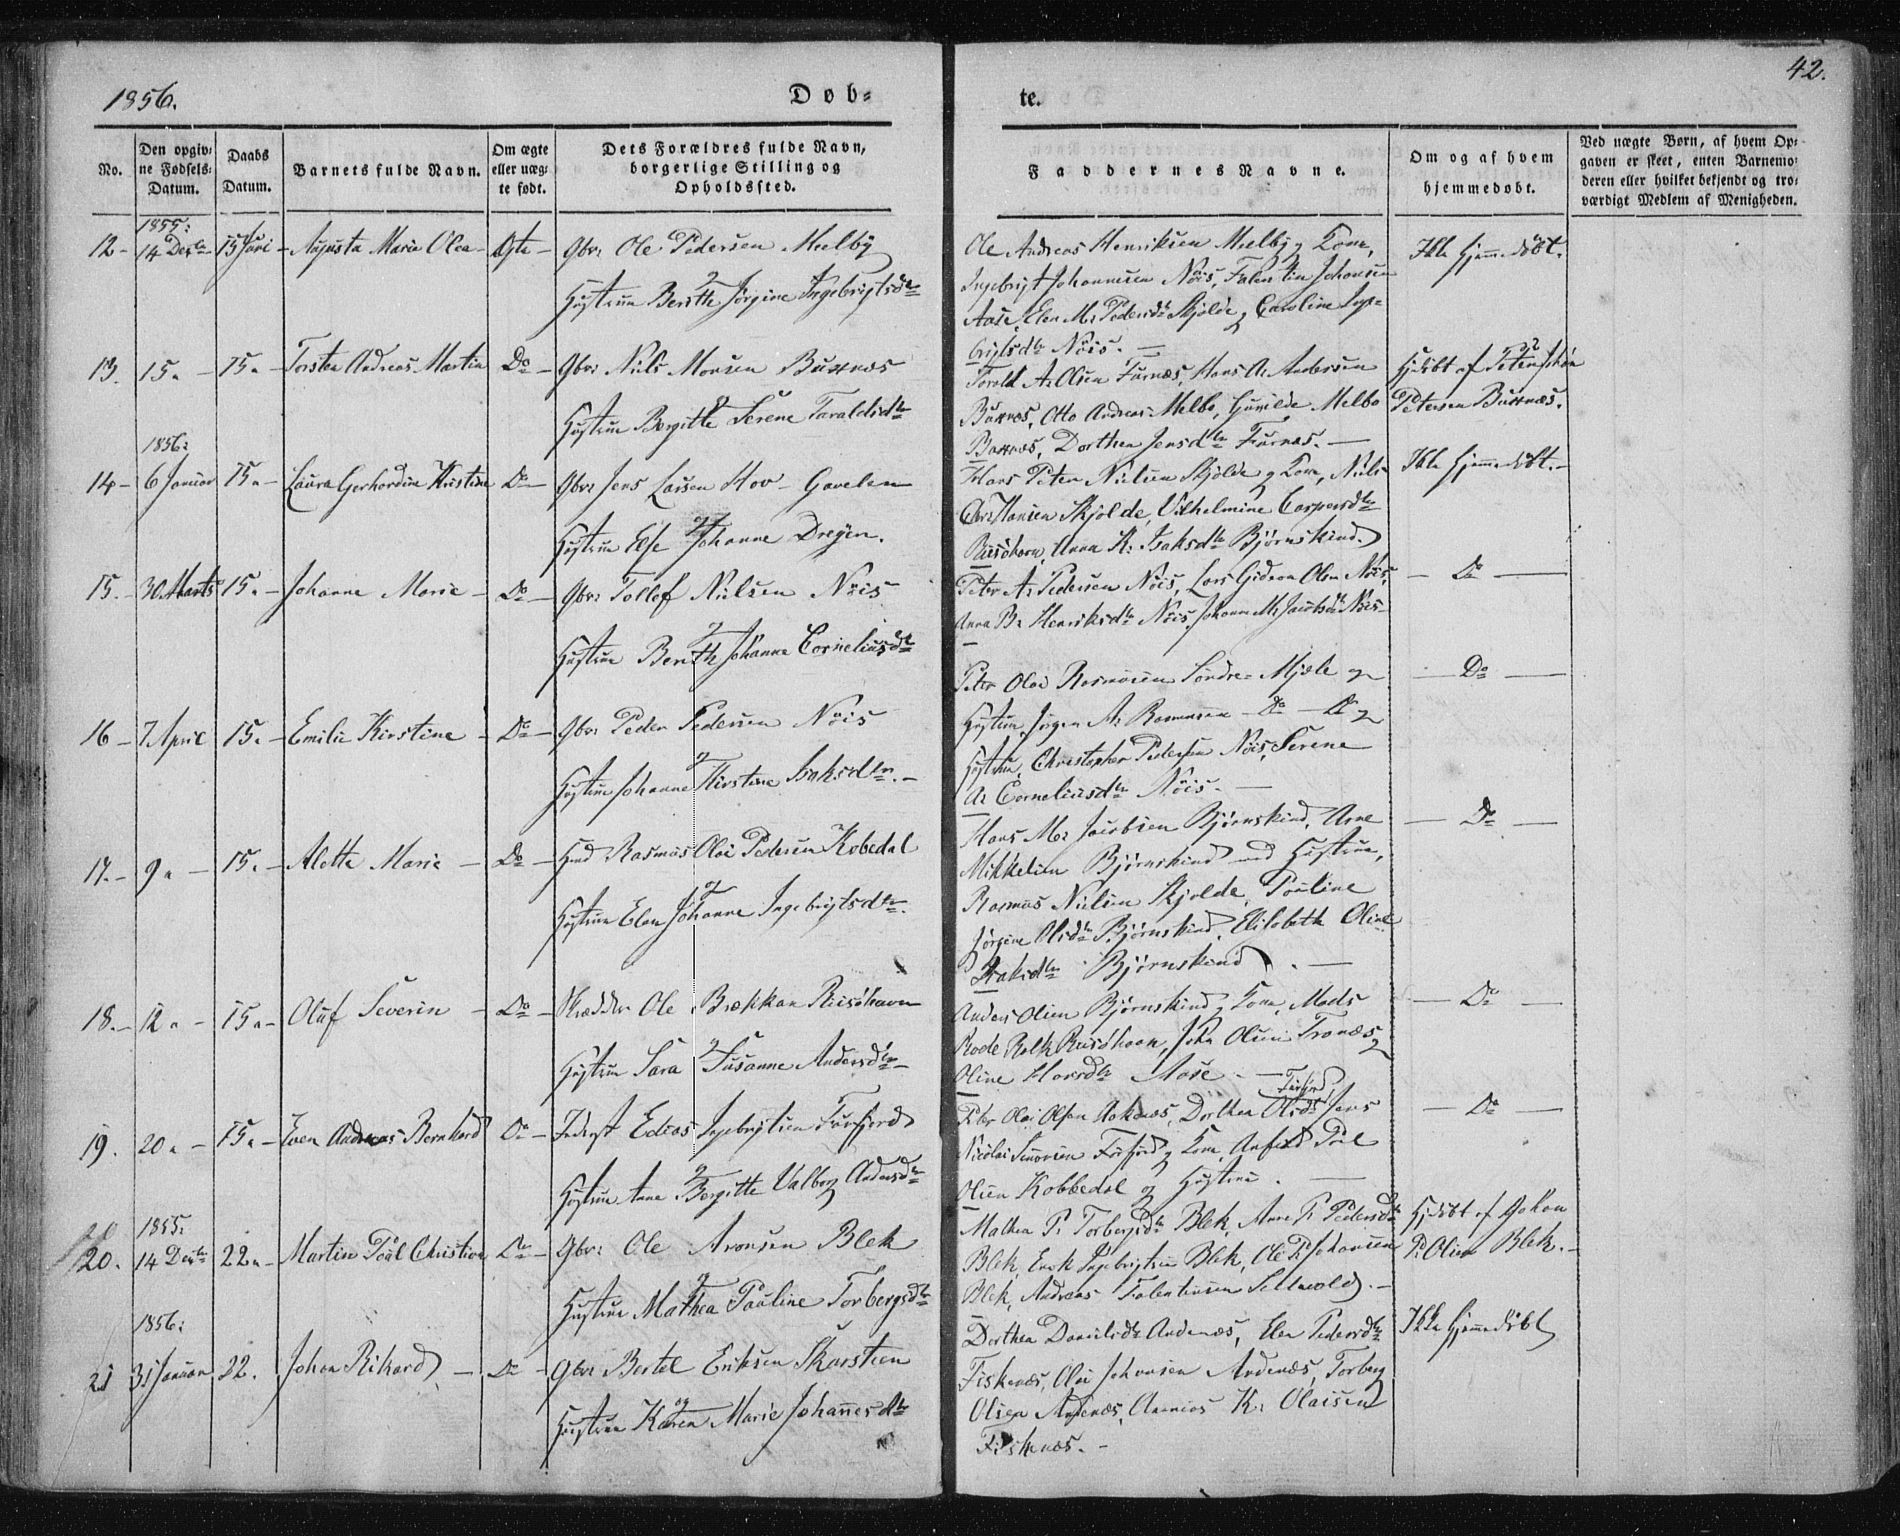 1856.
Døb-
te.
42.
No.
Den opgiv-
ne Fødsels-
Datum.
Daabs
Datum.
Barnets fulde Navn.
Om ægte
eller uæg-
te født.
Dets Forældres fulde Navn,
borgerlige Stilling og
Opholdssted.
Faddernes Navne.
Om og af hvem
hjemmedøbt.
Ved uægte Børn, af hvem Op-
gaven er skeet, enten Barnemo-
deren eller hvilket bekjendt og tro-
værdigt Medlem af Menigheden.
1855:
12 - 14 Decbr 15 Juni - Augusta Maria Olea - Ægte - Gbr: Ole Pedersen Melby
og
Hustrue Berith Jørgine Ingebrigtsdtr
Ole Andreas Henriksen Melby og Kone,
Ingebrigt Johannesen Nöis, Falentin Johansen
Aase, Elen M: Pedersdtr Skjolde og Caroline Inge-
brigtsdtr Nöis. -
Ikke hjemmedöbt.
13. 15. - 15. - Torsten Andreas Martin Do - Gbr: Niels Monsen Buxnæs
og
Hustrue Bergitte Serene Taraldsdtr
Torold A: Olsen Furnæs, Hans A: Andersen
Buxnæs, Otto Andreas Melbo, Gunilde Melbo
Buxnæs, Dorthea Jensdtr Furnæs. -
Hjdöbt af Peter Johan
Petersen Buxnæs.
1856:
14 - 6 Januar 15. - Laura Gerhardine Kristine Do - Gbr: Jens Larsen Hov - Gavelen
og
Hustrue Else Johanne Dreyer.
Hans Peter Nielsen Skjolde og Kone, Niels
Chr: Hansen Skjolde, Vilhelmine Caspersdtr
Riisöhavn, Anna K: Isaksdtr Bjørnskind.
Ikke hjemmedöbt. -
15. - 30 Marts 15. - Johanne Marie - Do - Gbr: Tollef Nielsen Nöis
og
Hustrue Berith Johanna Corneliusdtr
Peter A: Pedersen Nöis, Lars Gideon Olsen Nöis,
Anna B: Henriksdtr Nöis, Johanna M: Jacobsdtr Nöis -
- Do -
16 - 7 April 15. - Emilie Kirstine - Do - Gbr: Peder Pedersen Nöis
og
Hustrue Johanne Kirstine Isaksdtr. -
Peter Olai Rasmusen Søndre - Mjele og
Hustrue, Jørgen A: Rasmusen - Do - Do og
Hustrue, Christopher Pedersen Nöis, Serene
A: Corneliusdtr Nöis. -
- Do -
17. - 9. - 15. - Alette Marie - Do - Hmd Rasmus Olai Pedersen Kobedal
og
Hustrue Elen Johanne Ingebrigtsdtr.
Hans M: Jacobsen Bjørnskind, Arne
Mikkelsen Bjørnskind med Hustrue,
Rasmus Nielsen Skjolde, Pouline
Jørgine Olsdtr Bjørnskind, Elisabeth Oline
Isaksdtr Bjørnskind. -
- Do -
18. - 12. - 15. - Oluf Severin - Do - Skrædder Ole Brækkan Riisöhavn
og
Hustrue Sara Susanne Andersdtr -
Anders Olsen Bjørnskind og Kone, Mads
Rode Rolk Riisöhavn, John Olsen Tranæs og
Oline Hansdtr Aase. -
- Do -
19. 20. - 15. - Even Andreas Bernhard Do - Inderst Edias Ingebrigtsen Furfjord
og
Hustrue Anne Bergitte Valborg Andersdtr
Peter Olai Olsen Aaknæs, Dorthea Olsdtr Furfjord, Jens
Nicolai Simonsen Forfjord og Kone, Anfind Pøel
Olsen Kobbedal og Hustrue. -
- Do -
1855:
20. 14 Decbr 22. - Martin Poul Christian Do - Gbr: Ole Aronsen Blek
og
Hustrue Mathea Pauline Torbergsdtr
Mathea P: Torbergsdtr Blek, Anne P: Pedersdtr
Blek, Enok Ingebrigtsen Blek, Ole P: Johansen
Blek, Andreas Falentinsen Sellevold. -
Hjdöbt af Johan
P: Olsen Blek. -
1856:
21 31 Januar 22. Johan Rikard - Do - Gbr: Bertel Eriksen Skarstien
og
Hustrue Karen Marie Johannesdtr
Dorthea Danielsdtr Andenæs, Elen Pedersdtr
Fiskenæs, Olai Johansen Andenæs, Torberg
Olsen Andenæs, Ananias K: Olaisen
Fiskenæs. -
Ikke hjemmedöbt